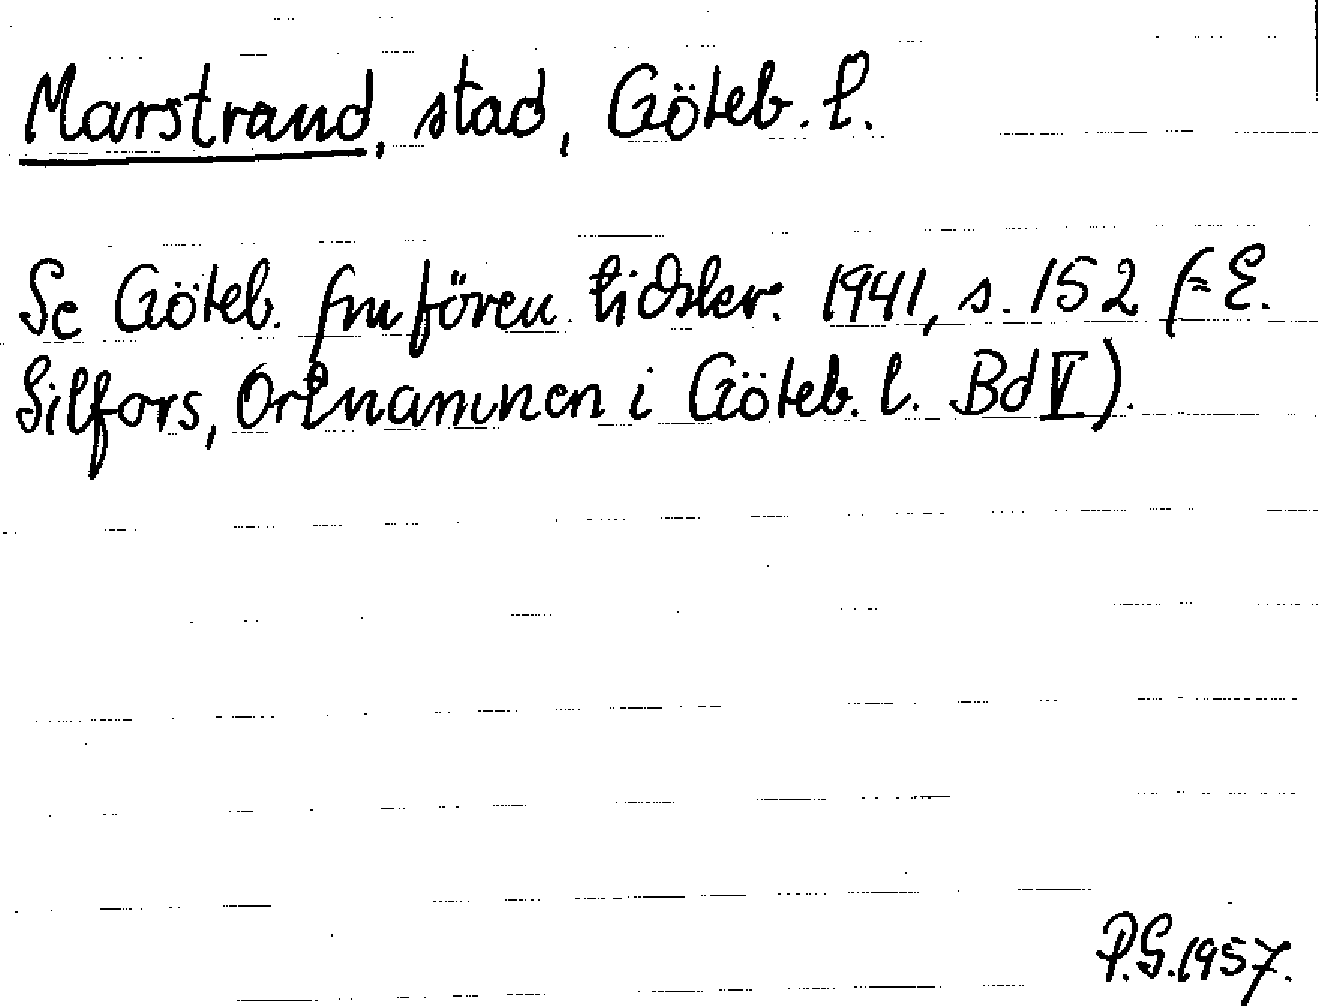 Marstrand, stad, Göteb. l.
Se Göteb. fmfören tidskr. 1941, s. 152 (= E.
Silfors, Ortnamnen i Göteb. l. Bd V).
P.G. 1957.